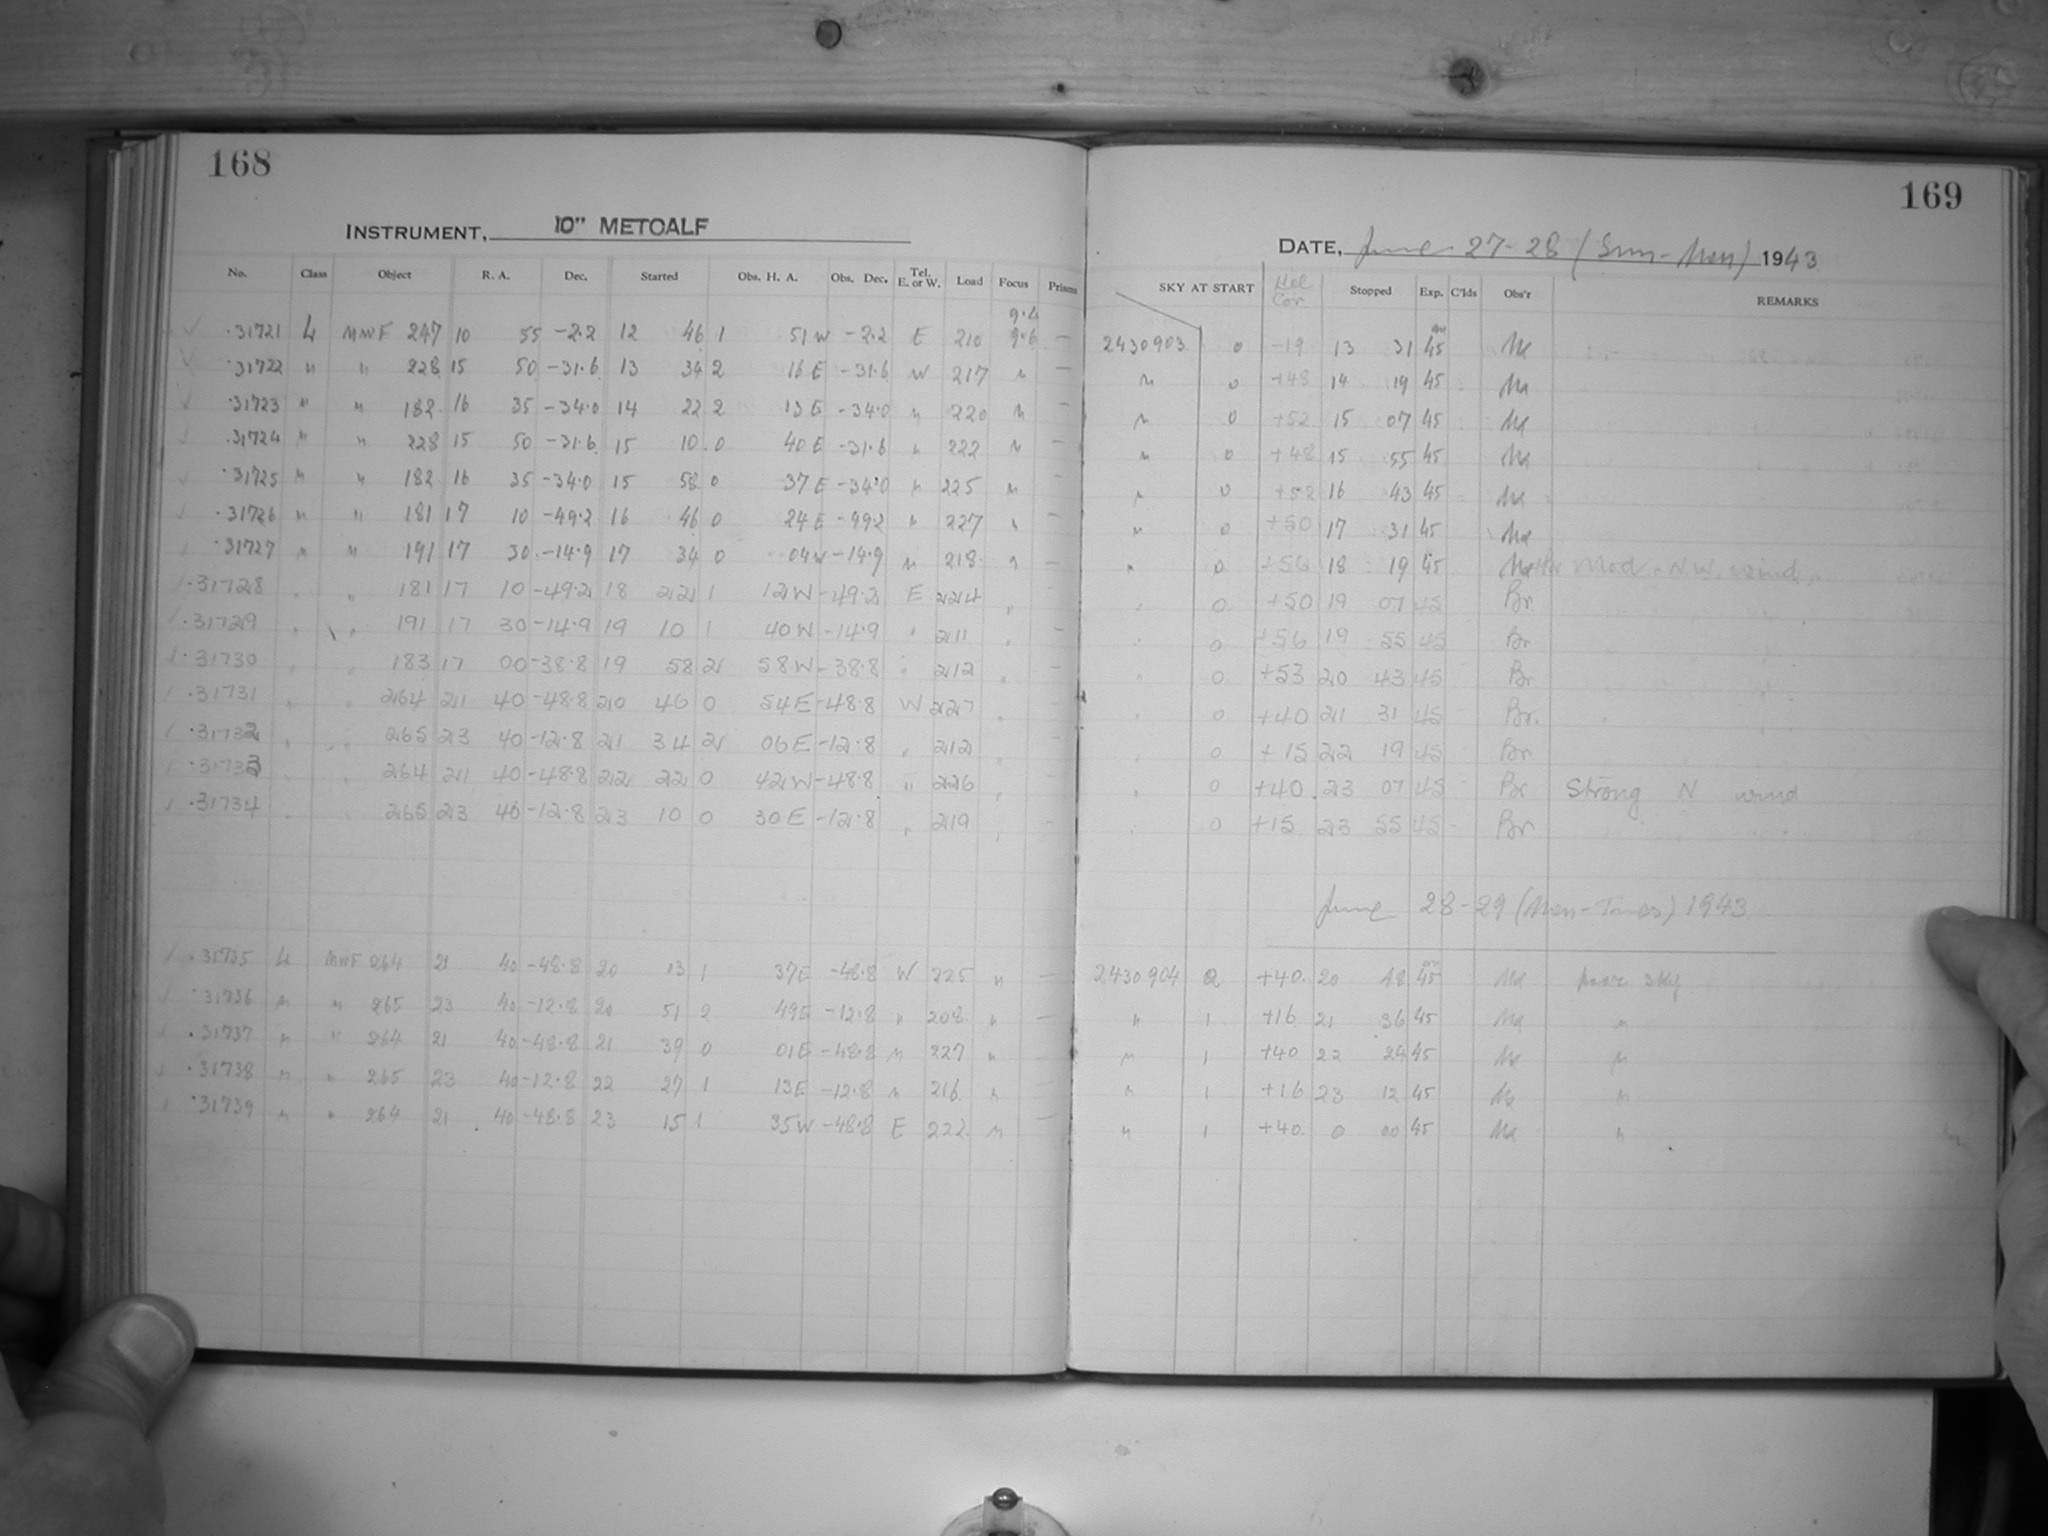 168
INSTRUMENT, 10" METCALF
No. Class Object R. A. Dec. Started Obs. H. A. Obs. Dec. Tel. E. or W. Load Focus Prisms
9.4
31721 L MWF 247 10 55 -2.2 12 46 1 51 W -2.2 E 210 9.6 —
31722 " " 228 15 50 -31.6 13 34 2 16 E -31.6 W 217 " —
31723 " " 182 16 35 -34.0 14 22 2 13 E -34.0 " 220 " —
31724 " " 228 15 50 -31.6 15 10 0 40 E -31.6 " 222 " —
31725 " " 182 16 35 -34.0 15 58 0 37 E -34.0 " 225 " —
31726 " " 181 17 10 -49.2 16 46 0 24 E -49.2 " 227 " —
31727 " " 191 17 30 -14.9 17 34 0 04 W -14.9 " 218 " —
31728 " " 181 17 10 -49.2 18 22 1 12 W -49.2 E 224 " —
31729 " " 191 17 30 -14.9 19 10 1 40 W -14.9 " 211 " —
31730 " " 183 17 00 -38.8 19 58 2 58 W -38.8 " 212 " —
31731 " " 264 21 40 -48.8 20 46 0 54 E -48.8 W 227 " —
31732 " " 265 23 40 -12.8 21 34 2 06 E -12.8 " 212 " —
31733 " " 264 21 40 -48.8 22 22 0 42 W -48.8 " 226 " —
31734 " " 265 23 40 -12.8 23 10 0 30 E -12.8 " 219 " —
31735 L MWF 264 21 40 -48.8 20 13 1 37 E -48.8 W 225 " —
31736 " " 265 23 40 -12.8 20 51 2 49 E -12.8 " 208 " —
31737 " " 264 21 40 -48.8 21 39 0 01 E -48.8 " 227 "
31738 " " 265 23 40 -12.8 22 27 1 13 E -12.8 " 216 "
31739 " " 264 21 40 -48.8 23 15 1 35 W -48.8 E 222 " —
169
DATE, June 27-28 (Sun-Mon) 1943
SKY AT START Hel Cor. Stopped Exp. C'lds Obs'r REMARKS
2430903 0 -19 13 31 45 Ma
" 0 +48 14 19 45 Ma
" 0 +52 15 07 45 Ma
" 0 +48 15 55 45 Ma
" 0 +52 16 43 45 Ma
" 0 +50 17 31 45 Ma
" 0 +56 18 19 45 Ma Mod. N.W. wind
" 0 +50 19 07 45 Br
" 0 +56 19 55 45 Br
" 0 +53 20 43 45 Br
" 0 +40 21 31 45 Br.
" 0 +15 22 19 45 Br
" 0 +40 23 07 45 Br Strong N wind
" 0 +15 23 55 45 Br
June 28-29 (Mon-Tues) 1943
2430904 2 +40 20 58 45 Ma poor sky
" 1 +16 21 36 45 Ma "
" 1 +40 22 24 45 Ma "
" 1 +16 23 12 45 Ma "
" 1 +40 0 00 45 Ma "